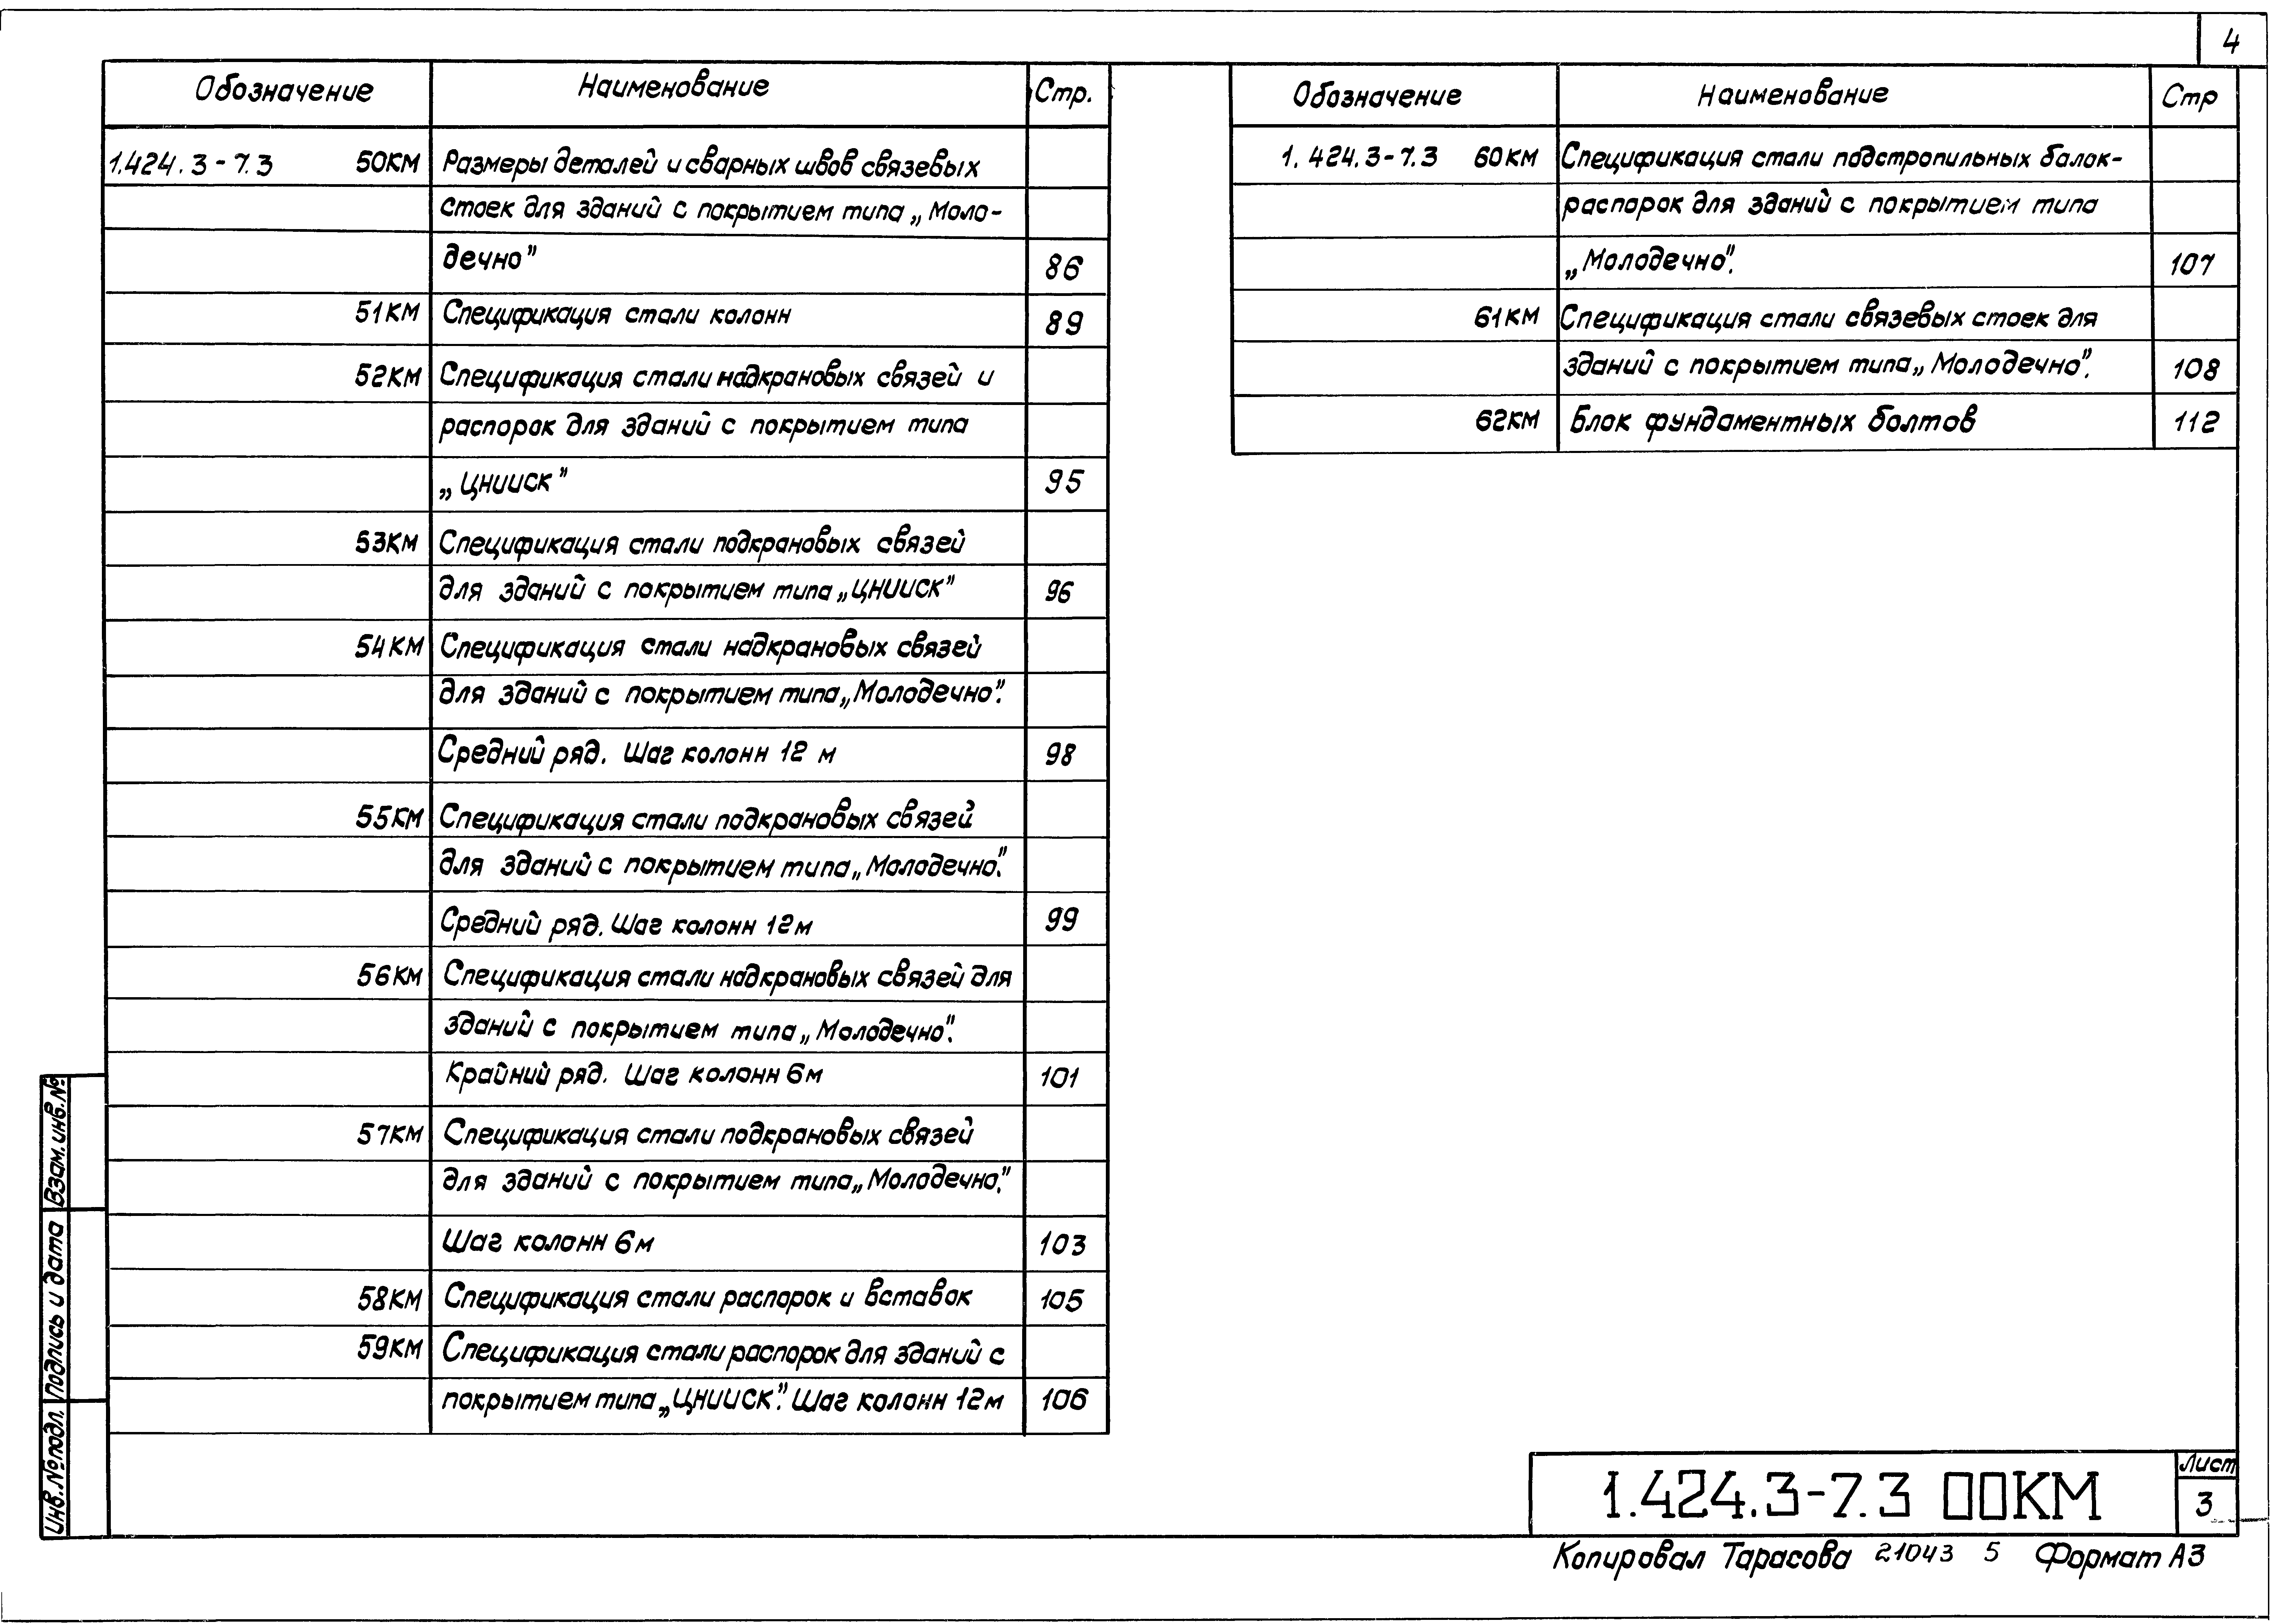 4
Обозначение Наименование Стр.
1.424.3-7.3 50КМ Размеры деталей и сварных швов связевых
стоек для зданий с покрытием типа „Моло-
дечно" 86
51КМ Спецификация стали колонн 89
52КМ Спецификация стали надкрановых связей и
распорок для зданий с покрытием типа
„ЦНИИСК" 95
53КМ Спецификация стали подкрановых связей
для зданий с покрытием типа „ЦНИИСК" 96
54КМ Спецификация стали надкрановых связей
для зданий с покрытием типа „Молодечно".
Средний ряд. Шаг колонн 12 м 98
55КМ Спецификация стали подкрановых связей
для зданий с покрытием типа „Молодечно".
Средний ряд. Шаг колонн 12м 99
56КМ Спецификация стали надкрановых связей для
зданий с покрытием типа „Молодечно".
Крайний ряд. Шаг колонн 6м 101
57КМ Спецификация стали подкрановых связей
для зданий с покрытием типа „Молодечно."
Шаг колонн 6м 103
58КМ Спецификация стали распорок и вставок 105
59КМ Спецификация стали распорок для зданий с
покрытием типа „ЦНИИСК". Шаг колонн 12м 106
Обозначение Наименование Стр
1.424.3-7.3 60КМ Спецификация стали подстропильных балок-
распорок для зданий с покрытием типа
„Молодечно". 107
61КМ Спецификация стали связевых стоек для
зданий с покрытием типа „Молодечно". 108
62КМ Блок фундаментных болтов 112
Взам.инв.№
Подпись и дата
Инв.№подл.
1.424.3-7.3 00КМ
Лист
3
Копировал Тарасова 21043 5 Формат А3